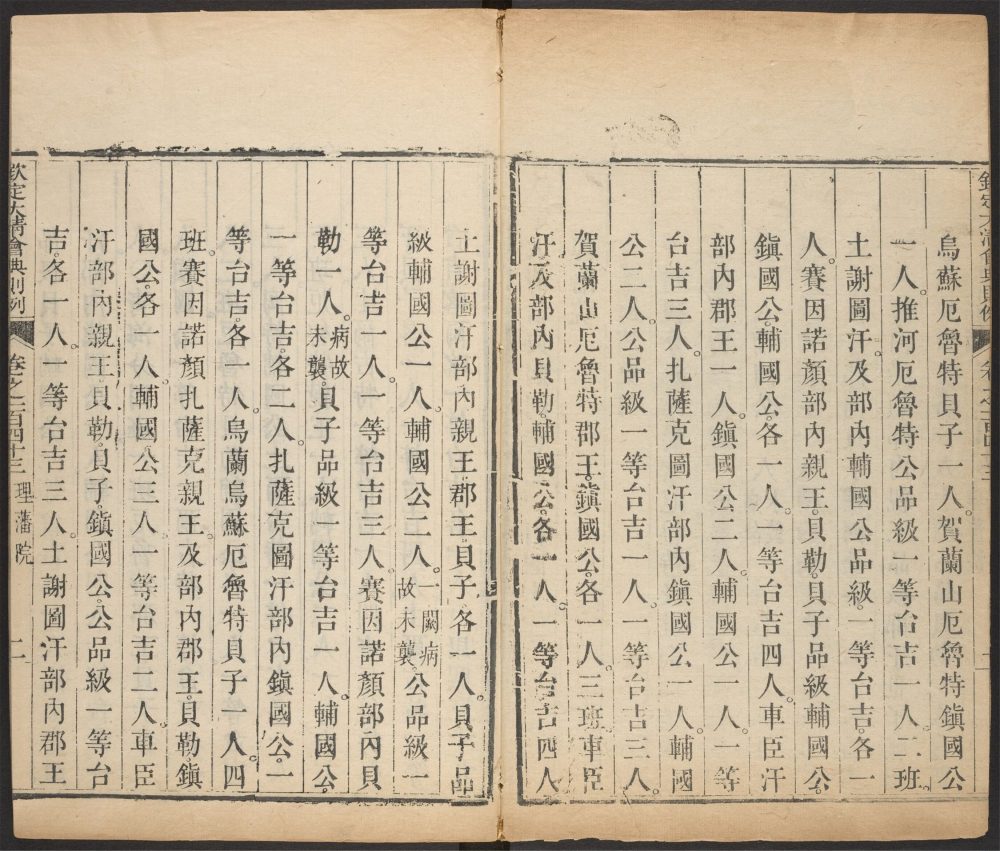 欽定大清會典則例
烏蘇厄魯特貝子一人賀蘭山厄魯特鎮國公
一人推河厄魯特公品級一等台吉一人二班
土謝圖汗及部內輔國公品級一等台吉各一
人賽因諾顏部內親王貝勒貝子品級輔國公
鎮國公輔國公各一人一等台吉四人車臣汗
部內郡王一人鎮國公二人輔國公一人一等
台吉三人扎薩克圖汗部內鎮國公一人輔國
公二人公品級一等台吉一人一等台吉三人
賀蘭山厄魯特郡王鎮國公各一人三班車臣
汗及部內貝勒輔國公各一人一等台吉四人
土謝圖汗部內親王郡王貝子各一人貝子品
級輔國公一人輔國公二人一闕病故未襲公品級一
等台吉一人一等台吉三人賽因諾顏部內貝
勒一人病故未襲貝子品級一等台吉一人輔國公
一等台吉各二人扎薩克圖汗部內鎮國公一
等台吉各一人烏蘭烏蘇厄魯特貝子一人四
班賽因諾顏扎薩克親王及部內郡王貝勒鎮
國公各一人輔國公三人一等台吉二人車臣
汗部內親王貝勒貝子鎮國公公品級一等台
吉各一人一等台吉三人土謝圖汗部內郡王
欽定大清會典則例 卷之一百四十三 理藩院 二